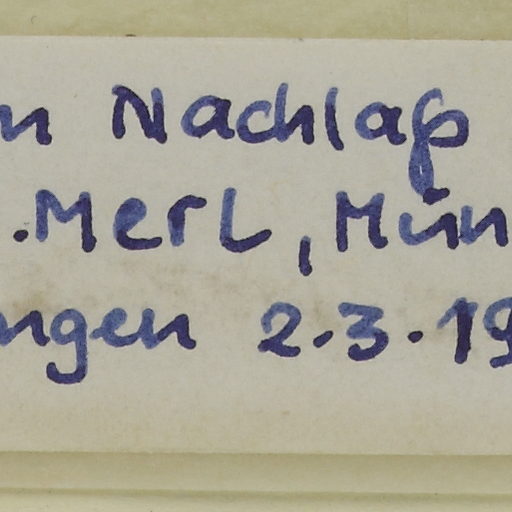 n Nachlaß
.Merl, Mün
ngen 2.3.19